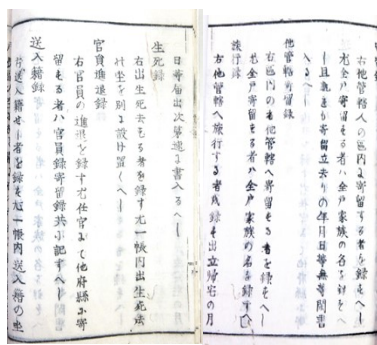 右他管轄人の區内に寄留する者を録すへし
尤全戸寄留する者ハ全戸家族の名を針をへ
し且
寄留立去りの年月日等無等閑書
入るへし
他管轄寄留録
右區内のもの他管轄へ寄留する者を録すへし
尤全戸寄留する者ハ全戸家族の名を録すへし
旅行録
右他管轄へ旅行する者
録す出立歸宅の月
日等届出次第速に書入るへし
生死録
右出生死去する者を録す尤一帳内出生死去
の坐を別に設け置くへし
官員進退録
右官員の進退を録す尤任官にて他府縣に寄
留する者ハ官員録寄留録共に記すへし
送入籍録
右送入籍せし者を録す尤一帳内送入籍の坐